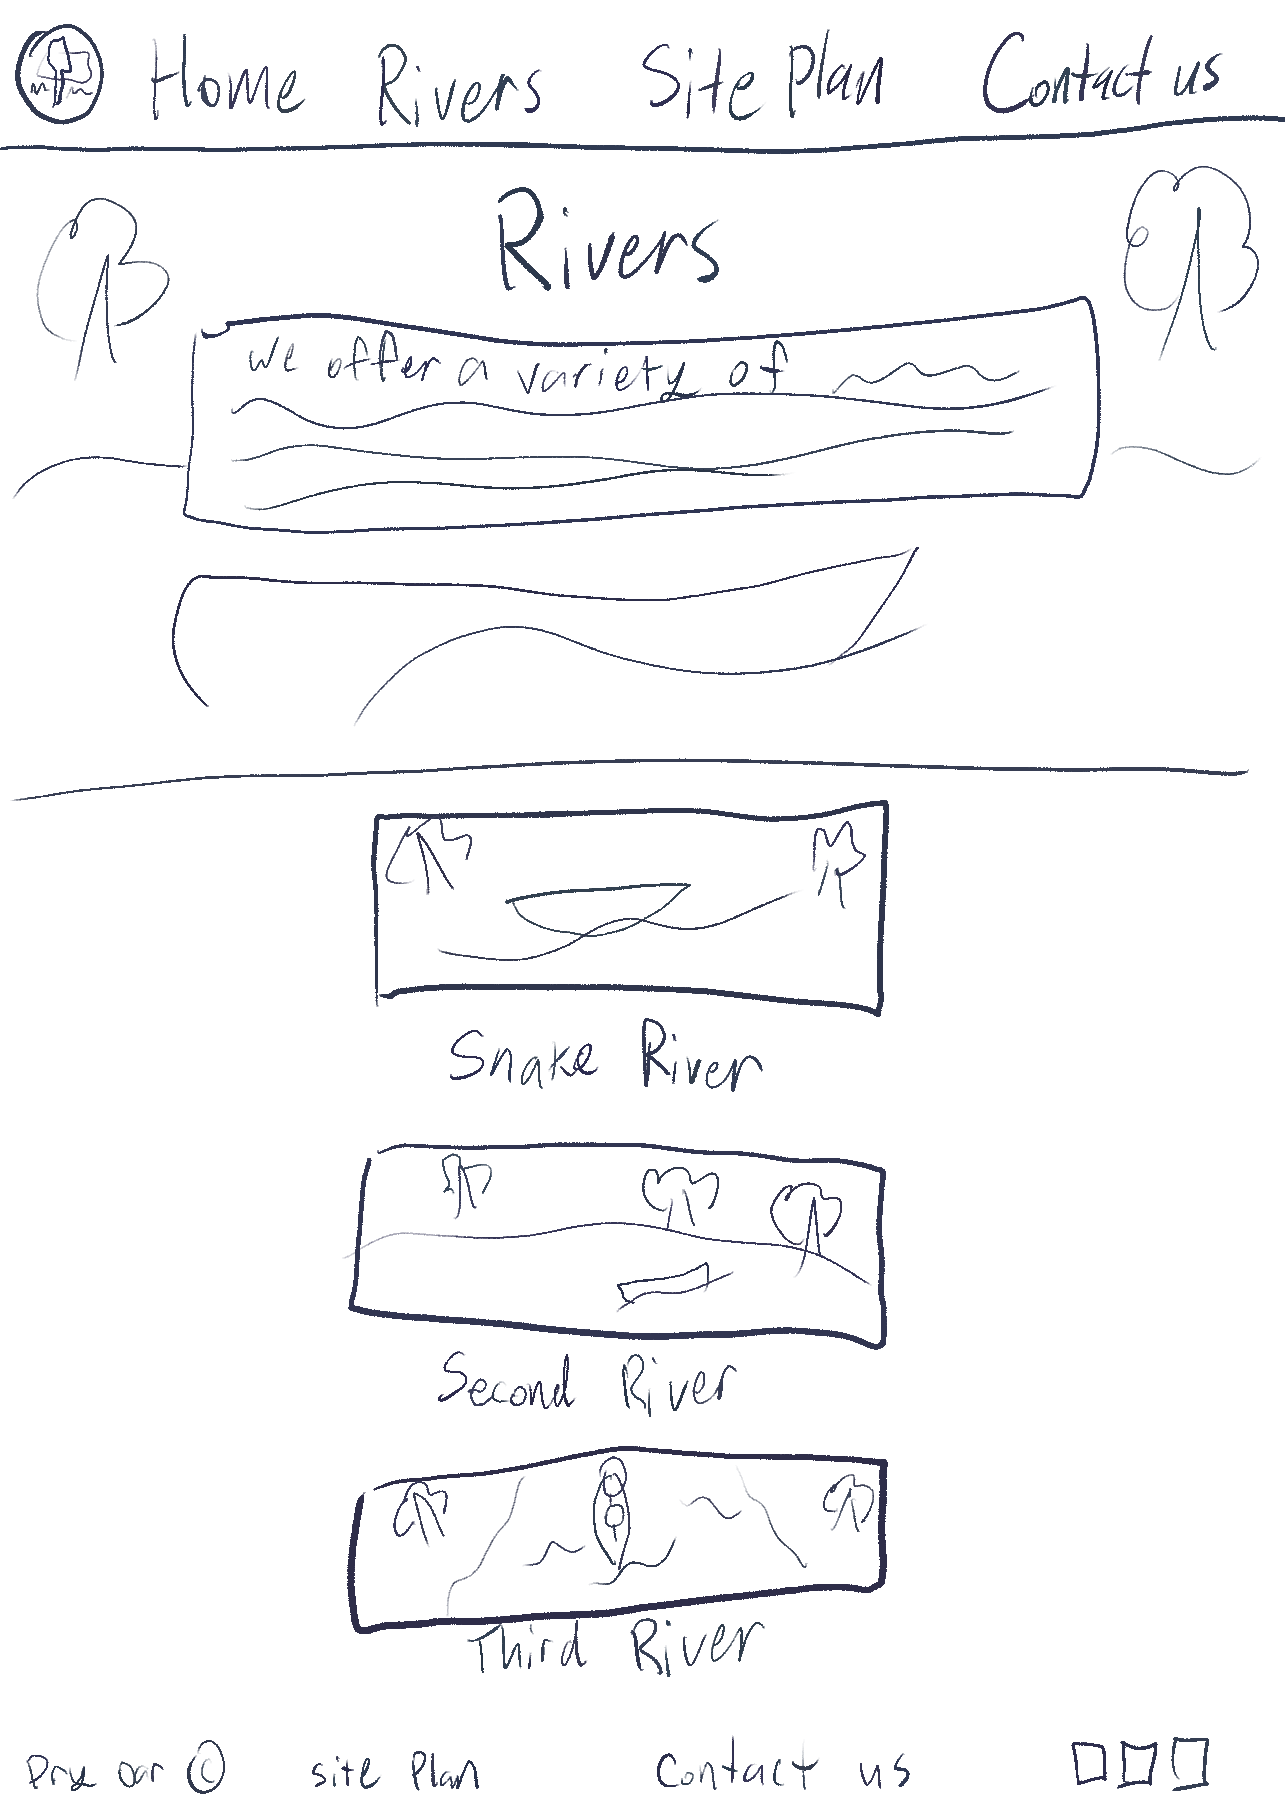 Home Rivers Site Plan Contact us
Rivers
we offer a variety of
Snake River
Second River
Third River
Dry oar © site Plan Contact us